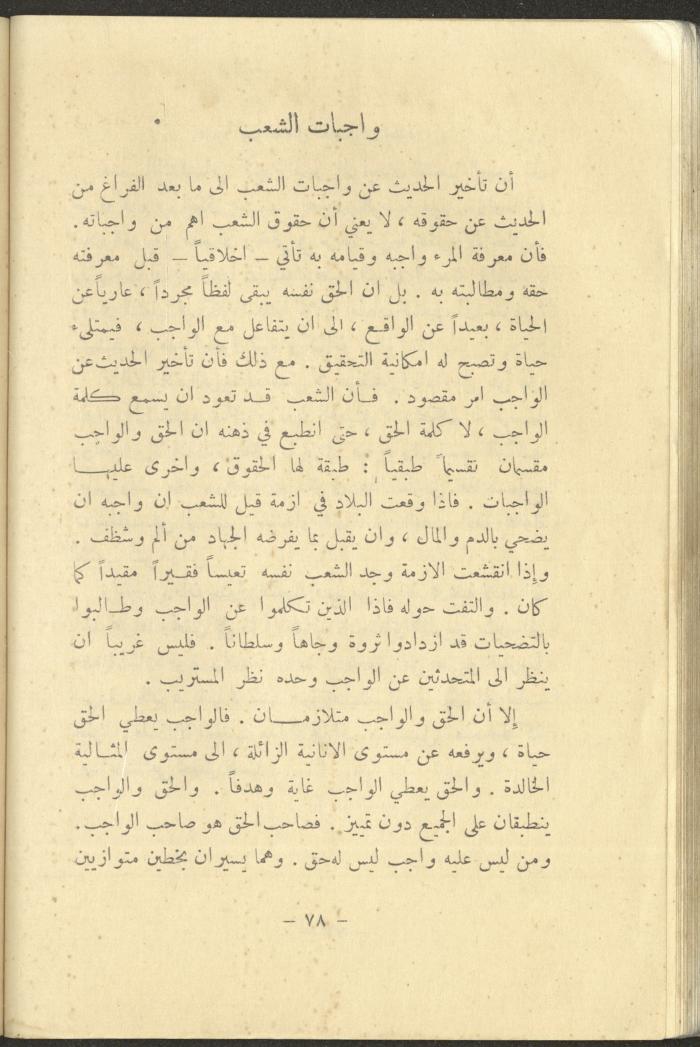 واجبات الشعب
أن تأخير الحديث عن واجبات الشعب الى ما بعد الفراغ من
الحديث عن حقوقه ، لا يعني أن حقوق الشعب اهم من واجباته .
فأن معرفة المرء واجبه وقيامه به تأتي – اخلاقياً – قبل معرفته
حقه ومطالبته به . بل ان الحق نفسه يبقى لفظاً مجرداً ، عارياً عن
الحياة ، بعيداً عن الواقع ، الى ان يتفاعل مع الواجب ، فيمتلىء
حياة وتصبح له امكانية التحقيق . مع ذلك فأن تأخير الحديث عن
الواجب امر مقصود . فأن الشعب قد تعود ان يسمع كلمة
الواجب ، لا كلمة الحق ، حتى انطبع في ذهنه ان الحق والواجب
مقسمان تقسيماً طبقياً : طبقة لها الحقوق ، واخرى عليها
الواجبات . فاذا وقعت البلاد في ازمة قيل للشعب ان واجبه ان
يضحي بالدم والمال ، وان يقبل بما يفرضه الجهاد من ألم وشظف .
وإذا انقشعت الازمة وجد الشعب نفسه تعيساً فقيراً مقيداً كما
كان . والتفت حوله فاذا الذين تكلموا عن الواجب وطالبوا
بالتضحيات قد ازدادوا ثروة وجاهاً وسلطاناً . فليس غريباً ان
ينظر الى المتحدثين عن الواجب وحده نظر المستريب .
إلا أن الحق والواجب متلازمان . فالواجب يعطي الحق
حياة ، ويرفعه عن مستوى الانانية الزائلة ، الى مستوى المثالية
الخالدة . والحق يعطي الواجب غاية وهدفاً . والحق والواجب
ينطبقان على الجميع دون تمييز . فصاحب الحق هو صاحب الواجب .
ومن ليس عليه واجب ليس له حق . وهما يسيران بخطين متوازيين
– ٧٨ –